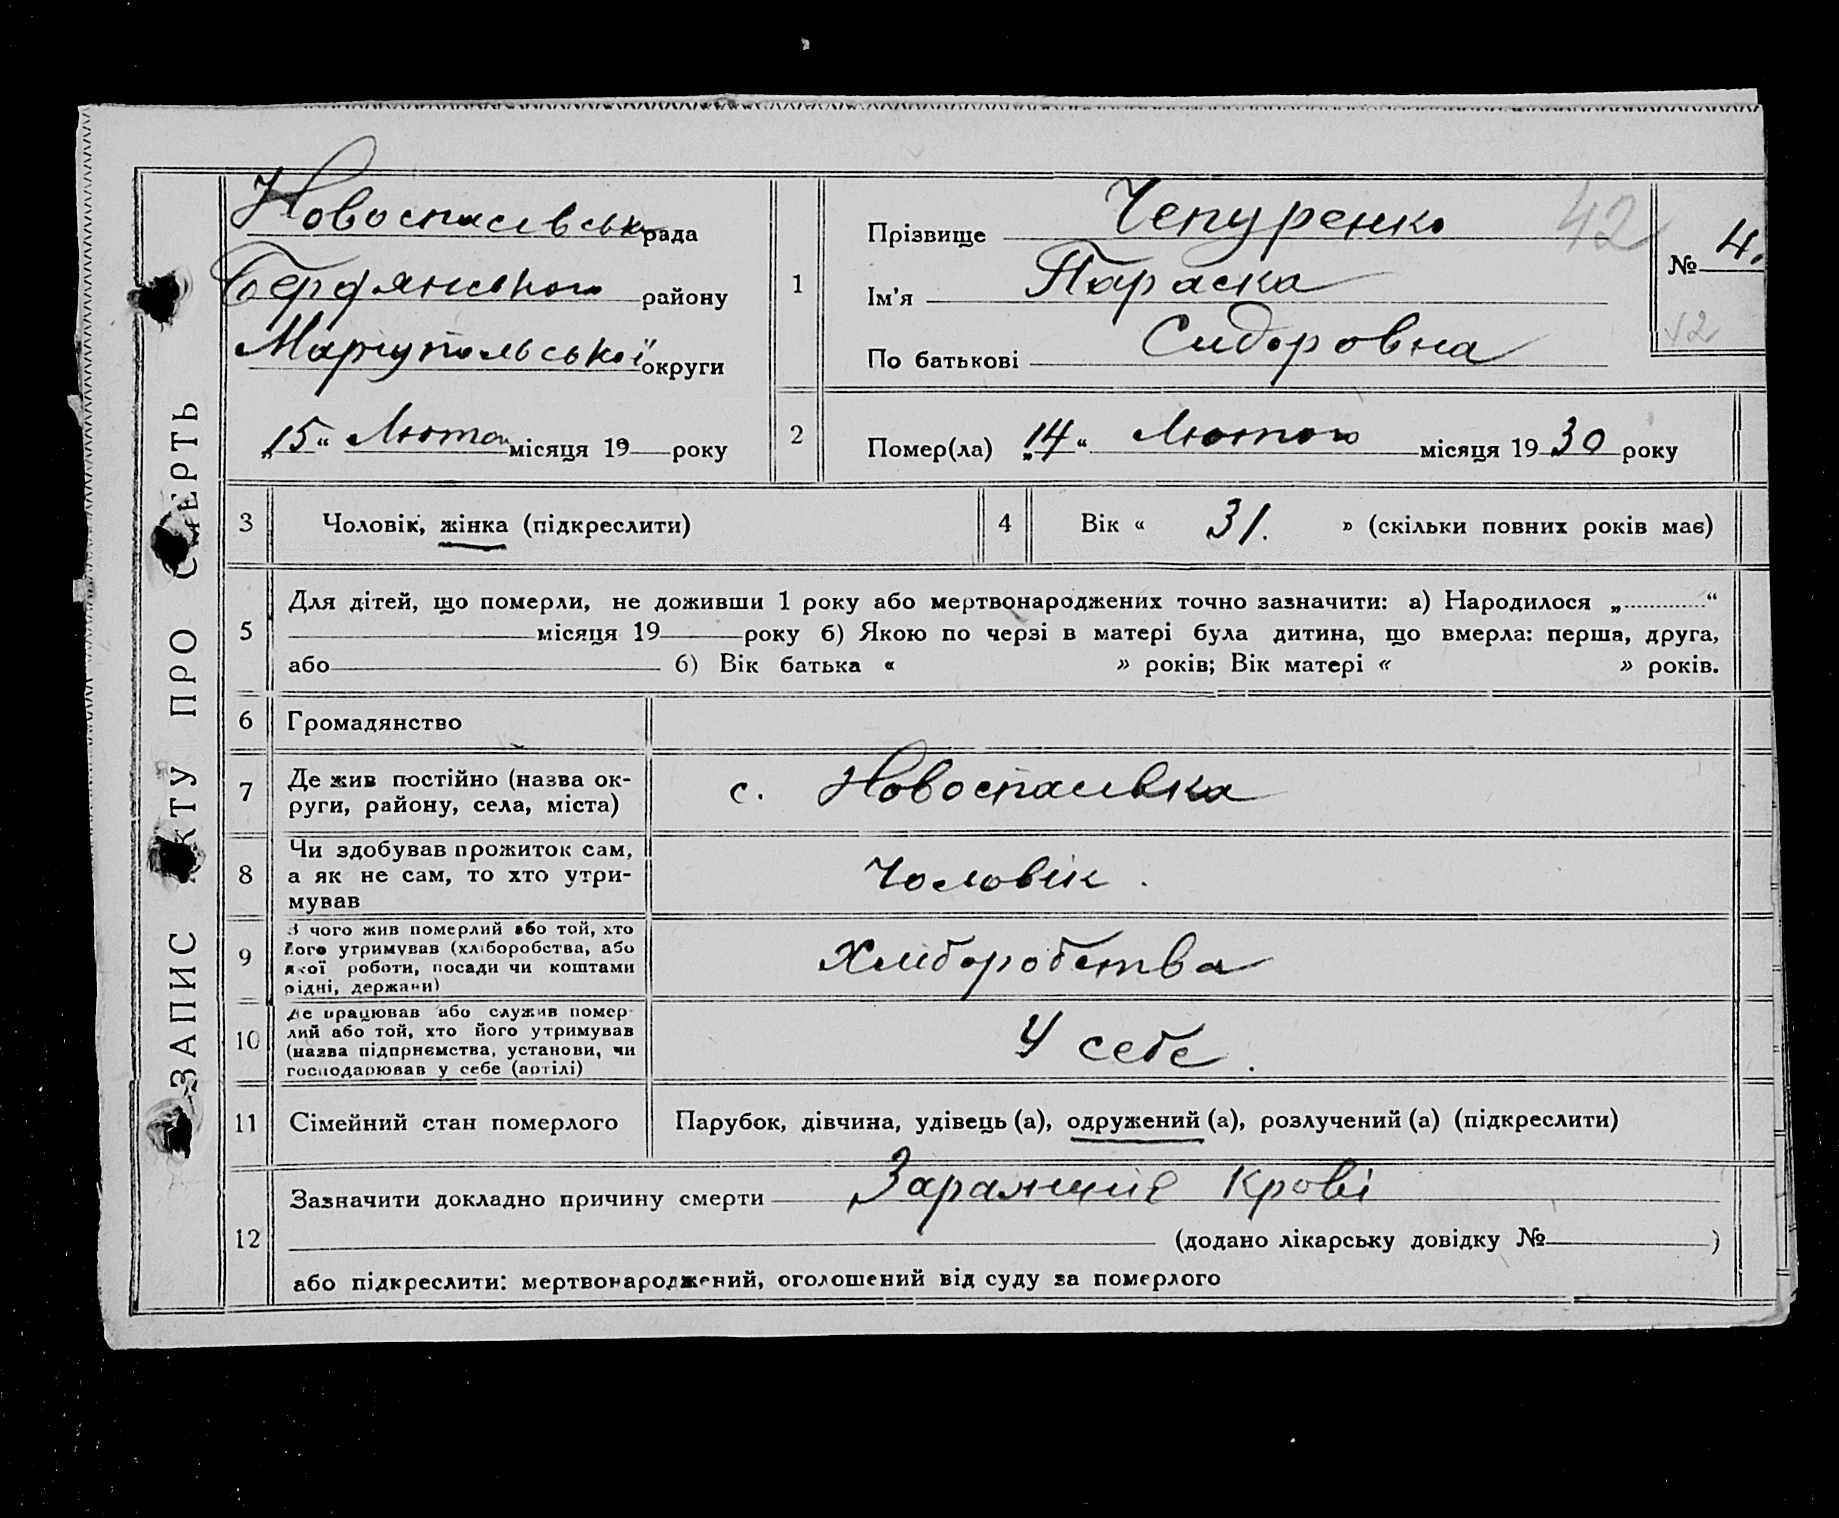 ЗАПИС АКТУ ПРО СМЕРТЬ
Новоспасівська рада
Бердянського району
Маріупольської округи
„15“ Лютого місяця 19 року
1
Прізвище Чепуренко
Ім'я Параска
По батькові Сидоровна
42
№ 4.
42
2
Помер(ла) „14“ Лютого місяця 1930 року
3 Чоловік, жінка (підкреслити)
4 Вік « 31. » (скільки повних років має)
5
Для дітей, що померли, не доживши 1 року або мертвонароджених точно зазначити: а) Народилося „ “
місяця 19 року б) Якою по черзі в матері була дитина, що вмерла: перша, друга,
або б) Вік батька « » років; Вік матері « » років.
6 Громадянство
7 Де жив постійно (назва ок-
руги, району, села, міста)
с. Новоспасівка
8 Чи здобував прожиток сам,
а як не сам, то хто утри-
мував
Чоловік.
9 З чого жив померлий або той, хто
його утримував (хліборобства, або
якої роботи, посади чи коштами
рідні, держави)
Хліборобства
10 Де працював або служив помер-
лий або той, хто його утримував
(назва підприємства, установи, чи
господарював у себе (артілі)
У себе.
11 Сімейний стан померлого
Парубок, дівчина, удівець (а), одружений (а), розлучений (а) (підкреслити)
12
Зазначити докладно причину смерти Зараженіе Крові
(додано лікарську довідку № )
або підкреслити: мертвонароджений, оголошений від суду за померлого